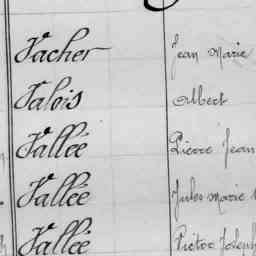 Vacher Jean Marie
Valois Albert
Vallée Pierre Jean
Vallée Jules Marie
Vallée Victor Joseph